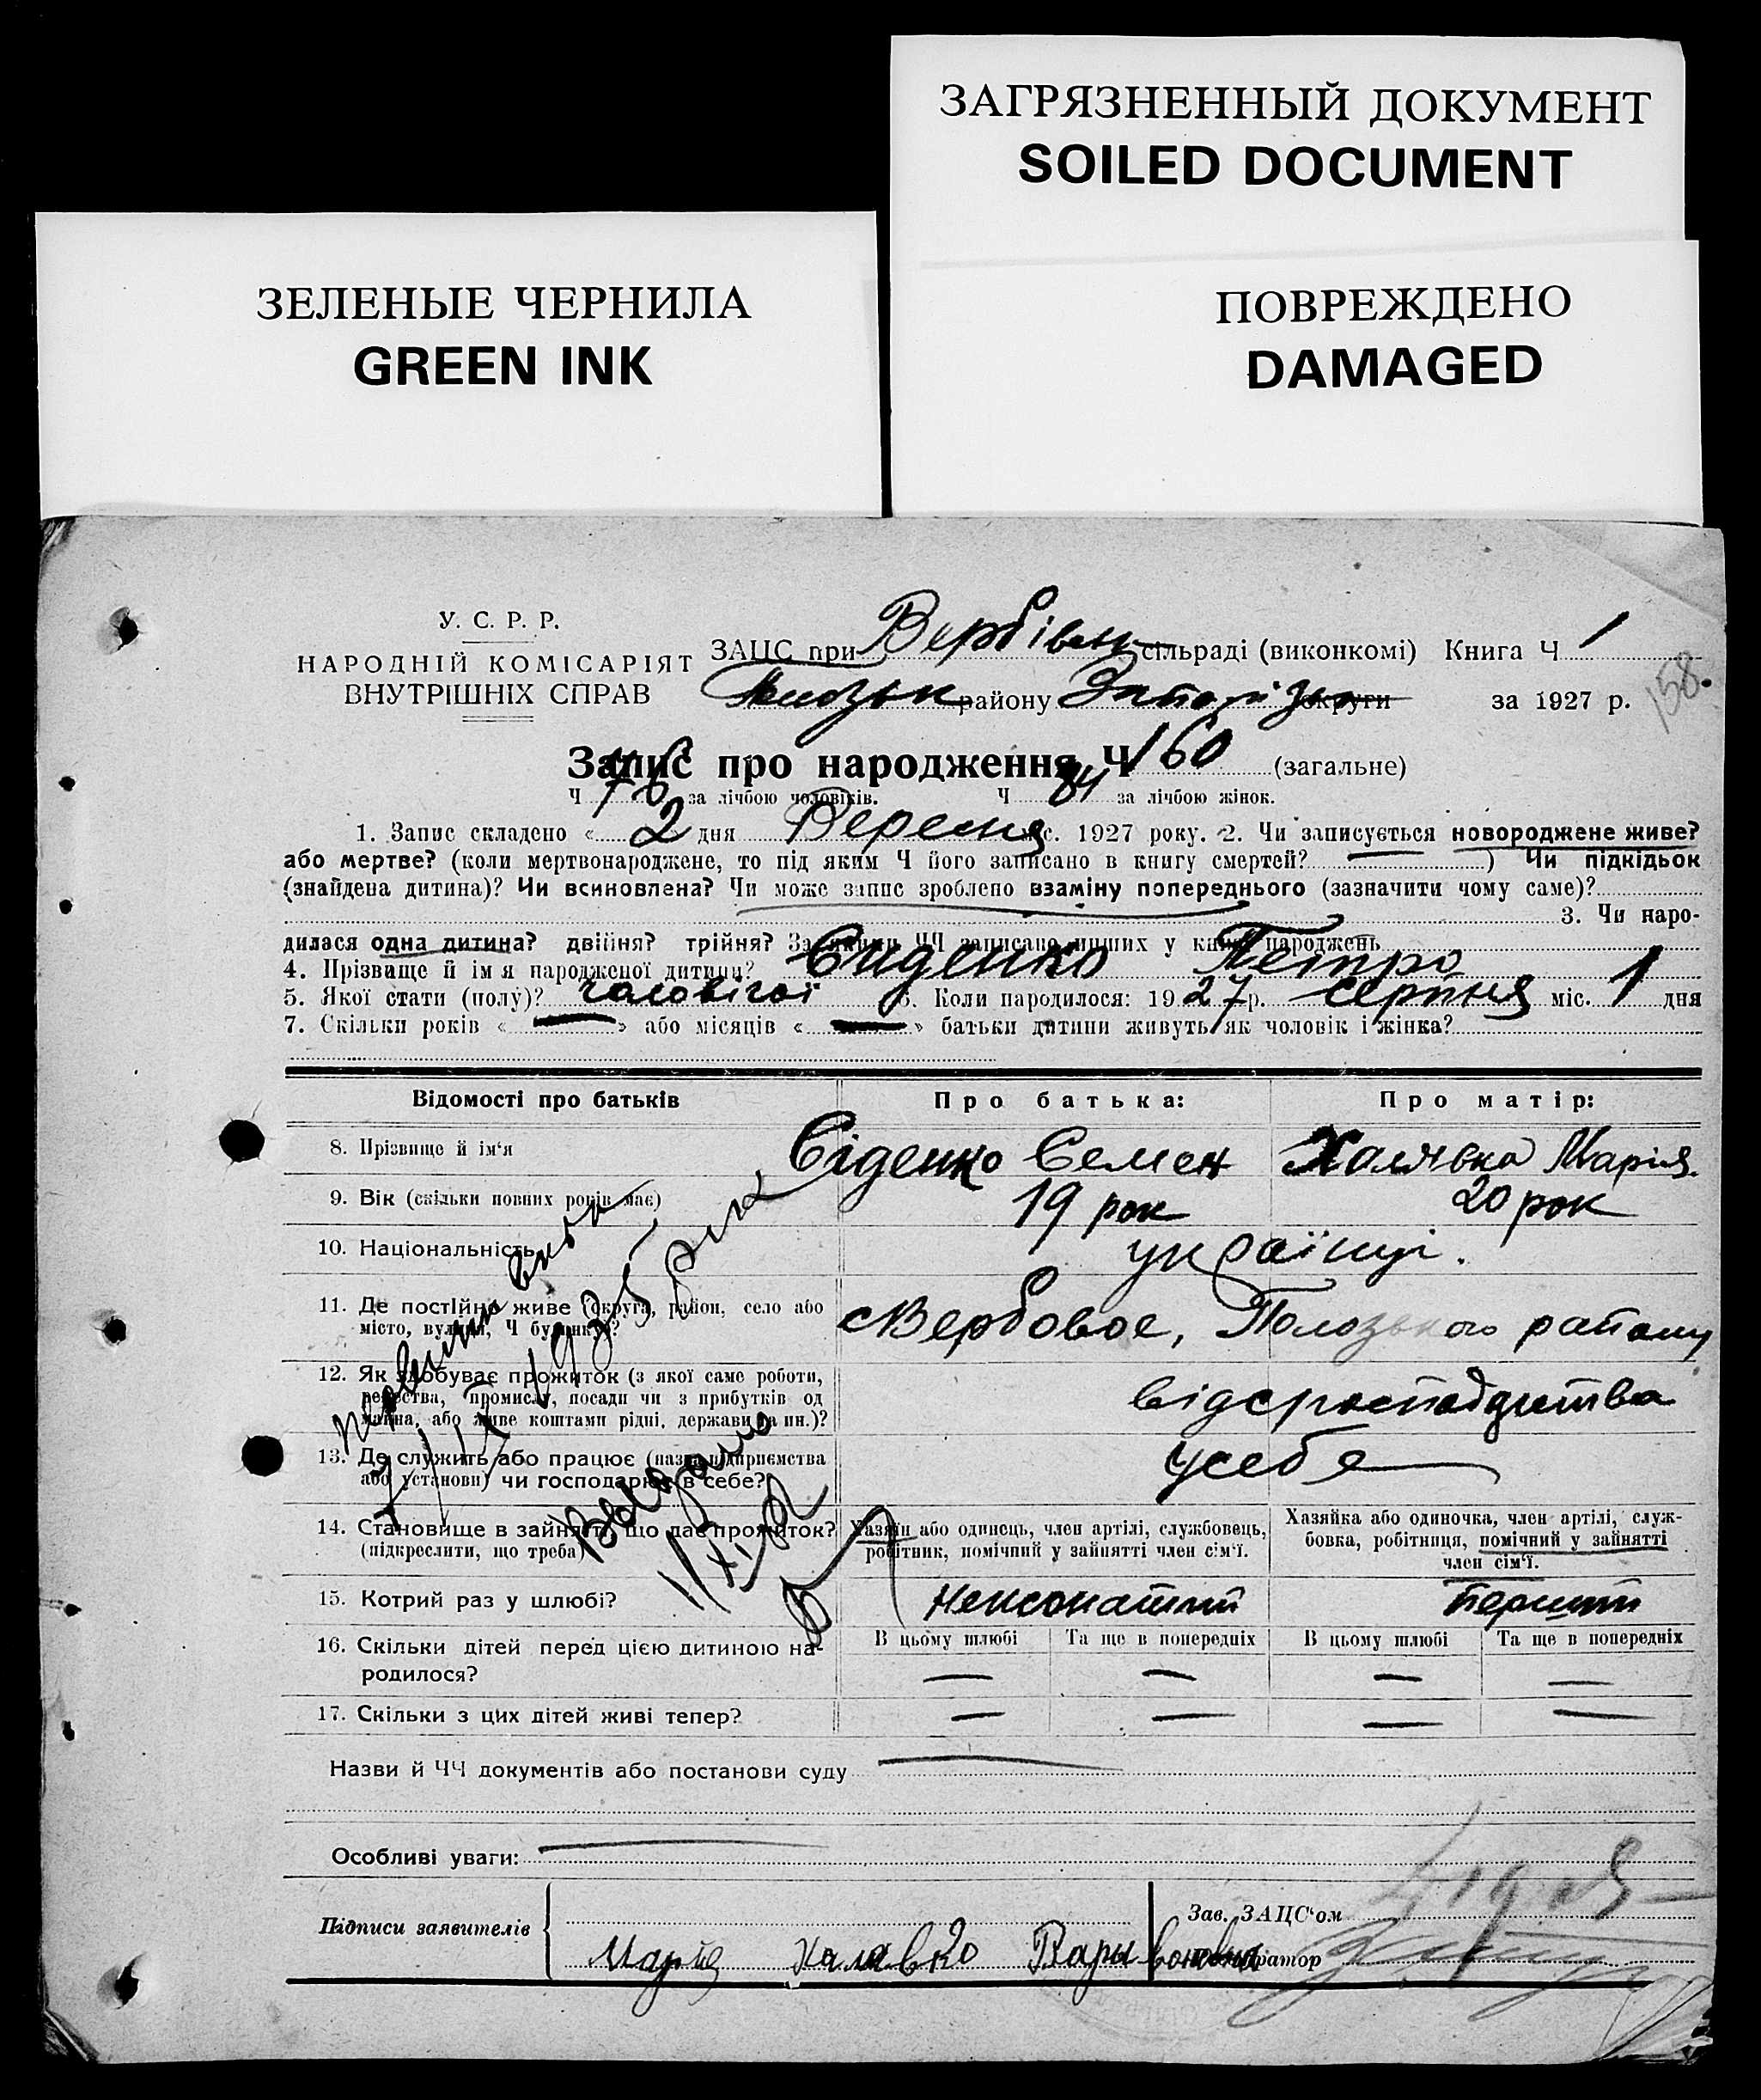 ЗАГРЯЗНЕННЫЙ ДОКУМЕНТ
SOILED DOCUMENT
ЗЕЛЕНЫЕ ЧЕРНИЛА
GREEN INK
ПОВРЕЖДЕНО
DAMAGED
У. С. Р. Р.
НАРОДНІЙ КОМІСАРІЯТ
ВНУТРІШНІХ СПРАВ
ЗАЦС при Вербівськ сільраді (виконкомі) Книга Ч 1
району Запоріз округи за 1927 р.
158
Запис про народження Ч 160 (загальне)
Ч 76 за лічбою чоловіків. Ч 84 за лічбою жінок.
1. Запис складено « 2 дня Вересня с. 1927 року. 2. Чи записується новороджене живе?
або мертве? (коли мертвонароджене, то під яким Ч його записано в книгу смертей? —) Чи підкідьок
(знайдена дитина)? Чи всиновлена? Чи може запис зроблено взаміну попереднього (зазначити чому саме)?
3. Чи наро-
дилася одна дитина? двійня? трійня? За якими ЧЧ записано инших у книзі народжень
4. Прізвище й ім я народженої дитини? Сиденко Петро
5. Якої стати (полу)? чоловічої 6. Коли народилося: 1927 р. серпня міс. 1 дня
7. Скільки років « — » або місяців « — » батьки дитини живуть як чоловік і жінка?
Відомості про батьків Про батька: Про матір:
8. Прізвище й ім'я Сіденко Семен Халявка Марія.
9. Вік (скільки повних років має) 19 рок 20 рок
10. Національність українці.
11. Де постійно живе (округа, район, село або
місто, вулиця, Ч будинку)? с Вербовое, Полозького району
12. Як здобуває прожиток (з якої саме роботи,
ремества, промислу, посади чи з прибутків од
майна, або живе коштами рідні, держави та ин.)?
13. Де служить або працює (назва підприємства
або установи) чи господарює в себе? у себе
14. Становище в зайнятті, що дає прожиток?
(підкреслити, що треба)
Хазяїн або одинець, член артілі, службовець,
робітник, помічний у зайнятті член сім'ї.
Хазяйка або одиночка, член артілі, служ-
бовка, робітниця, помічний у зайнятті
член сім'ї.
1935 Выдано
15. Котрий раз у шлюбі? перший
В цьому шлюбі Та ще в попередніх В цьому шлюбі Та ще в попередніх
16. Скільки дітей перед цією дитиною на-
родилося? — — — —
17. Скільки з цих дітей живі тепер? — — — —
Назви й ЧЧ документів або постанови суду —
Особливі уваги: —
Підписи заявителів
Зав. ЗАЦС'ом
Марія Халявко